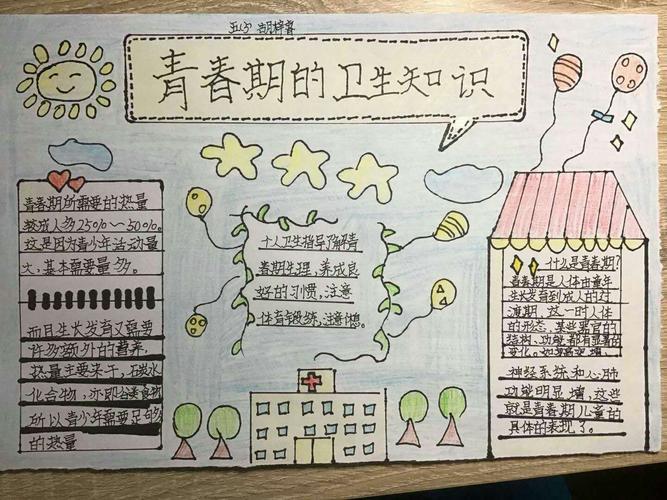 青春期的卫生知识
青春期所需要的热量
较成人多25%~50%。
这是因为青少年活动量
大,基本需要量多。
而且生长发育又需要
许多额外的营养,
热量主要来于,石碳水
化合物,亦即谷类食物
所以青少年需要足够的
的热量
个人卫生指导了解青
春期生理,养成良
好的习惯,注意
体育锻练,注意休息。
什么是青春期?
青春期是人体由童年
生长发育到成人的过
渡期,这一时人体
的形态,某些器官的
结构、功能都有显著的
变化。如
神经系统和心肺
功能明显增,这些
就是青春期儿童的
具体的表现了。